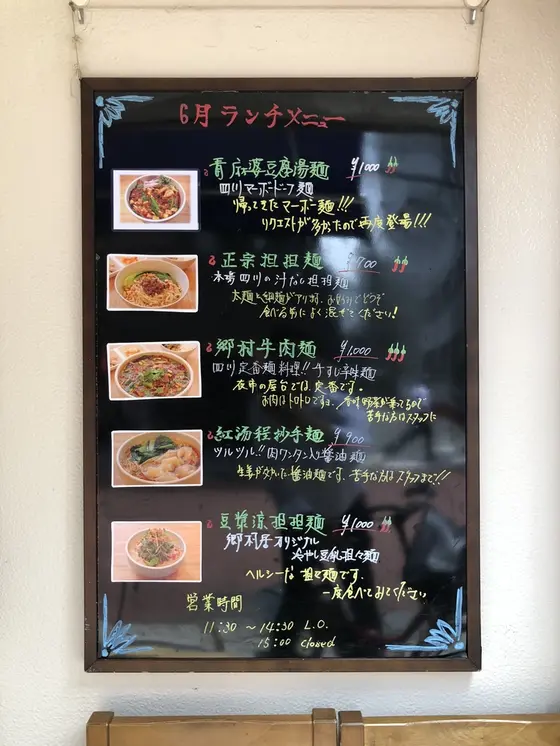 6月ランチメニュー
青麻婆豆腐湯麺 ¥1000
四川マーボードーフ麺
帰ってきたマーボー麺!!!
リクエストが多かったので再度登場!!!
正宗担担麺 ¥900
本場四川の汁なし担担麺
太麺と細麺がアリます。お好みでどうぞ
食べる前によく混ぜてください!
郷村牛肉麺 ¥1,000
四川定番麺料理!!牛すじ辛味麺
夜市の屋台では、定番です。
お肉はトロトロですョ、香味野菜が乗ってるので
苦手な方はスタッフに
紅汤程抄手麺 ¥900
ツルツル!!肉ワンタン入り醤油麺
生姜が効いた醤油麺です、苦手な方はスタッフまで!!
豆漿涼担担麺 ¥1000
郷村居オリジナル
冷やし豆乳担々麺
ヘルシーな担々麺です.
一度食べてみてください
営業時間
11:30 ～ 14:30 L.O.
15:00 closed